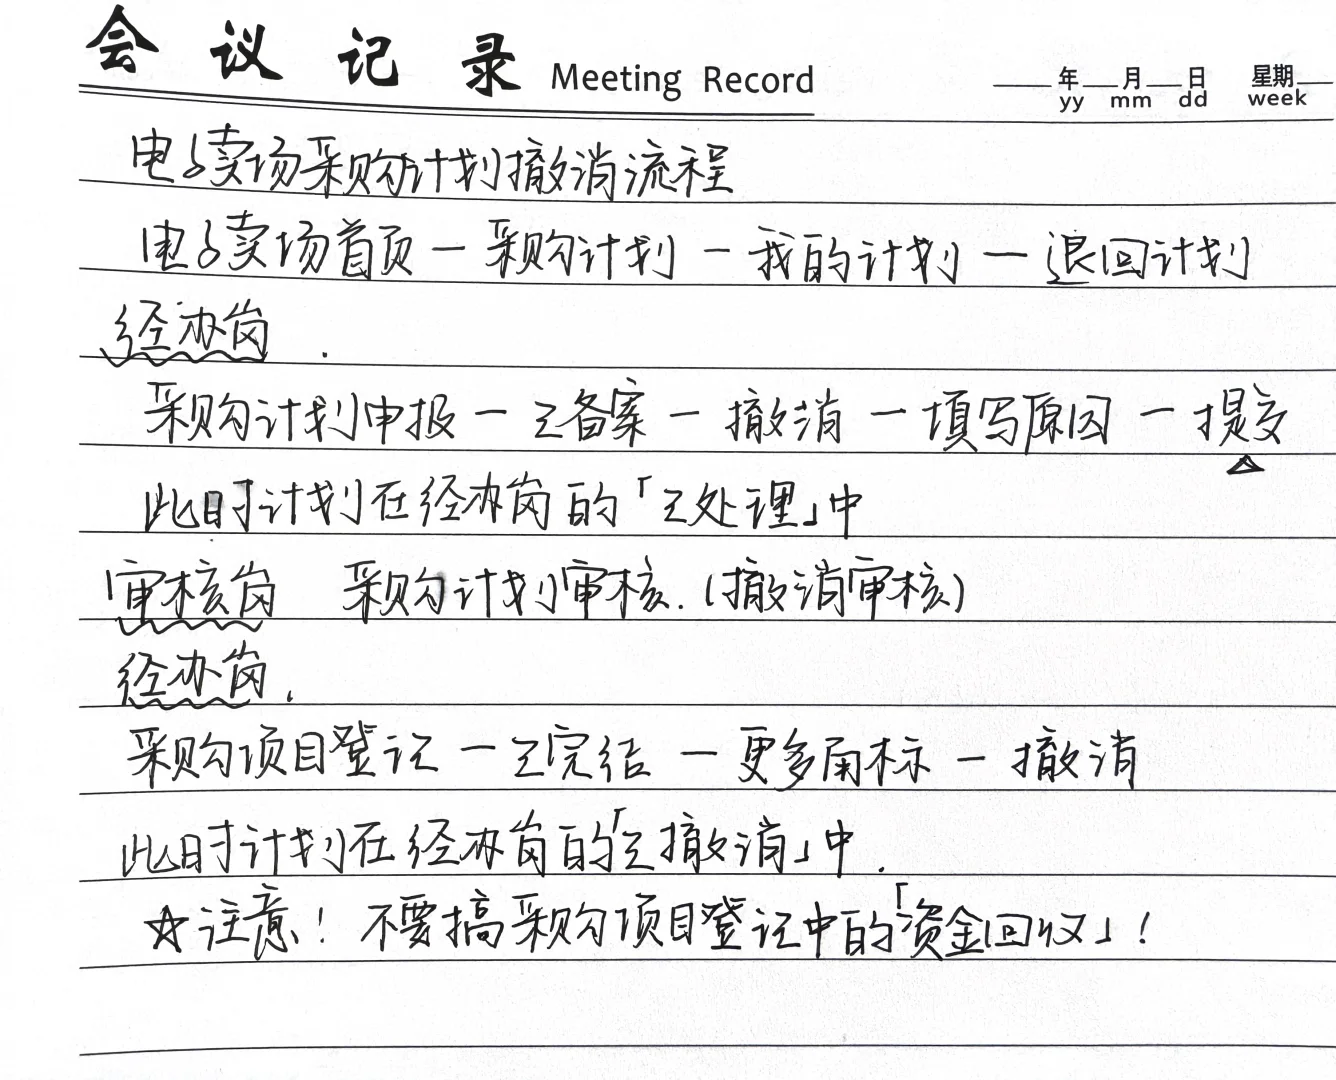 会议记录 Meeting Record 年 月 日 星期
yy mm dd week
电子卖场采购计划撤消流程
电子卖场首页 — 采购计划 — 我的计划 — 退回计划
经办岗.
采购计划申报 — 已备案 — 撤消 — 填写原因 — 提交
此时计划在经办岗的「已处理」中
审核岗 采购计划审核.(撤消审核)
经办岗.
采购项目登记 — 已完结 — 更多角标 — 撤消
此时计划在经办岗的「已撤消」中.
☆注意! 不要搞采购项目登记中的「资金回收」!